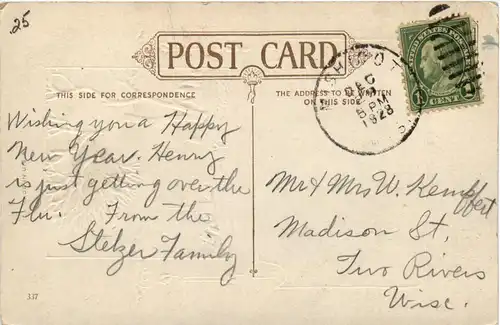 25
POST CARD
THIS SIDE FOR CORRESPONDENCE
THE ADDRESS TO BE WRITTEN
ON THIS SIDE
UNITED STATES POSTAGE
1 CENT
DEC
5 PM
1928
Wishing you a Happy
New Year. Henry
is just getting over the
Flu. From the
Stelzer Family
Mr & Mrs W. Kempffert
Madison St.
Two Rivers
Wisc.
337